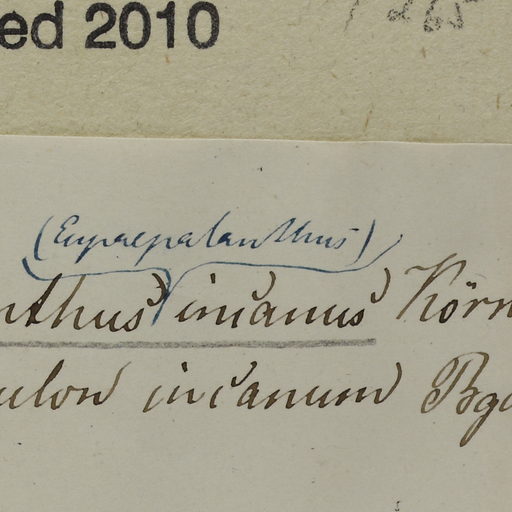 ed 2010 1265
(Eupaepalanthus)
nthus incanus Körn
ulon incanum Bg